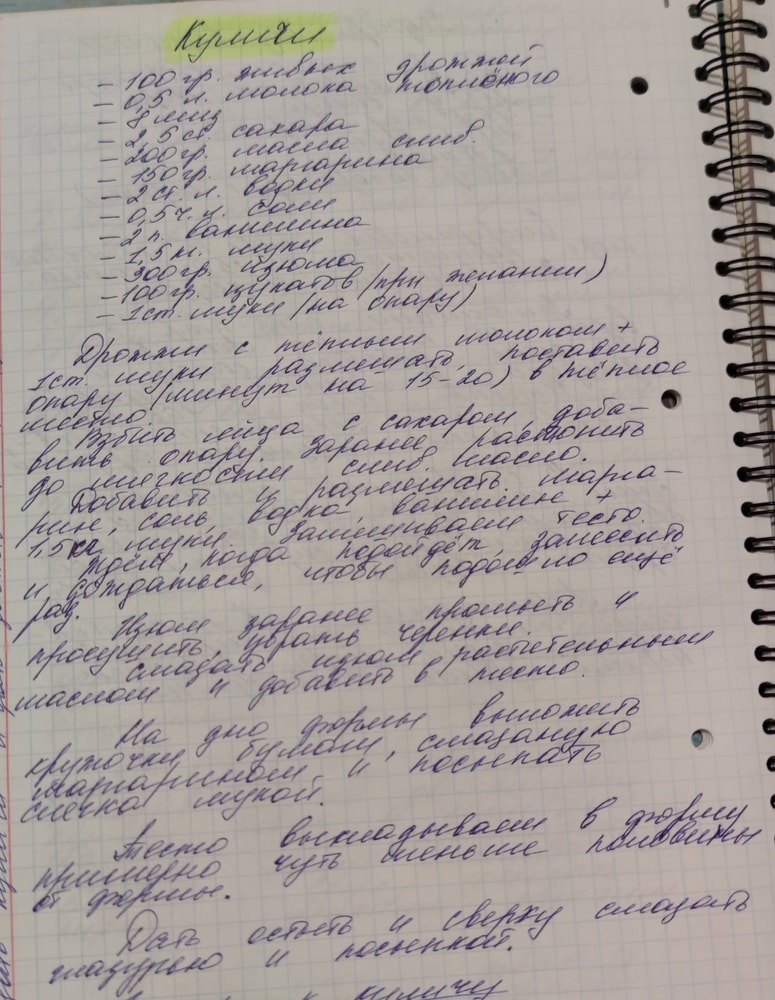 Куличи
– 100 гр. живых дрожжей
– 0,5 л. молока топлёного
– 8 яиц
– 2,5 ст. сахара
– 200 гр. масла слив.
– 150 гр. маргарина
– 2 ст. л. водки
– 0,5 ч. л. соли
– 2 п. ванилина
– 1,5 кг. муки
– 300 гр. изюма
– 100 гр. цукатов /при желании)
– 1 ст. муки /на опару)
Дрожжи с тёплым молоком +
1 ст. муки размешать, поставить
опару /минут на 15-20) в тёплое
место
Взбить яйца с сахаром, доба-
вить опару. Заранее растопить
до мягкости слив. масло.
Добавить и размешать марга-
рин, соль, водка, ванилин +
1,5 кг муки. Замешиваем тесто.
Ждём, когда подойдёт, замесить
и дождаться, чтобы подошло ещё
раз.
Изюм заранее промыть и
просушить, убрать черенки.
Смазать изюм растительным
маслом и добавить в тесто.
На дно формы выложить
кружочки бумаги, смазаную
маргарином и посыпать
слегка мукой.
Тесто выкладываем в форму
примерно чуть меньше половины
от формы.
Дать остыть и сверху смазать
глазурью и посыпкой.
куличу